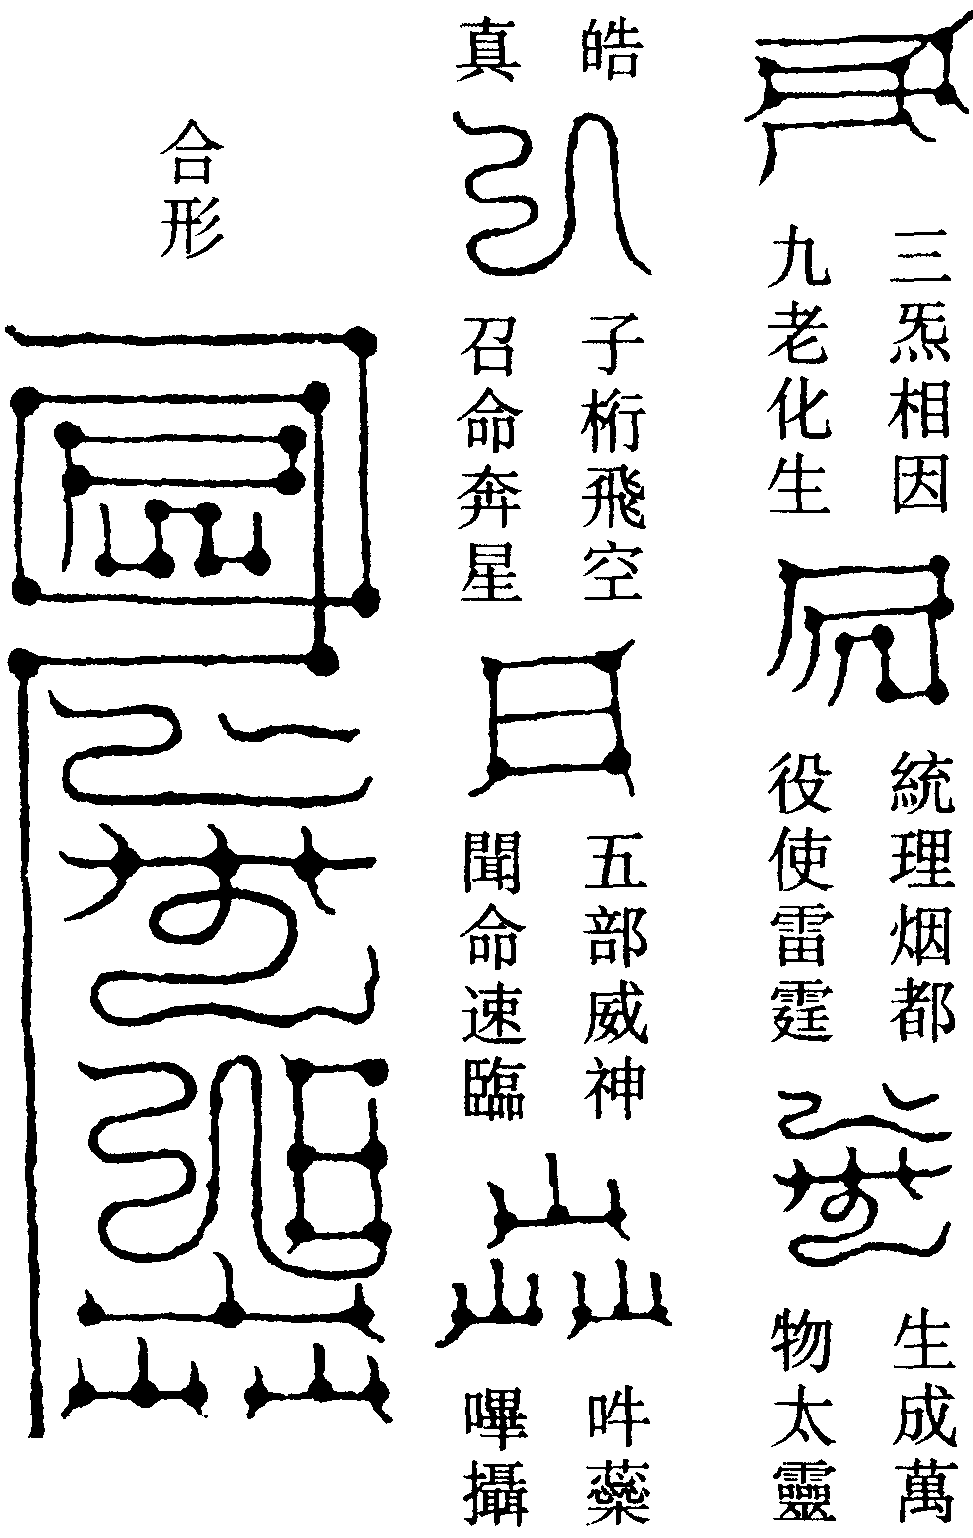 三炁相因
九老化生
統理烟都
役使雷霆
生成萬
物太靈
皓
真
子桁飛空
召命奔星
五部威神
聞命速臨
吽蘂
嗶攝
合形